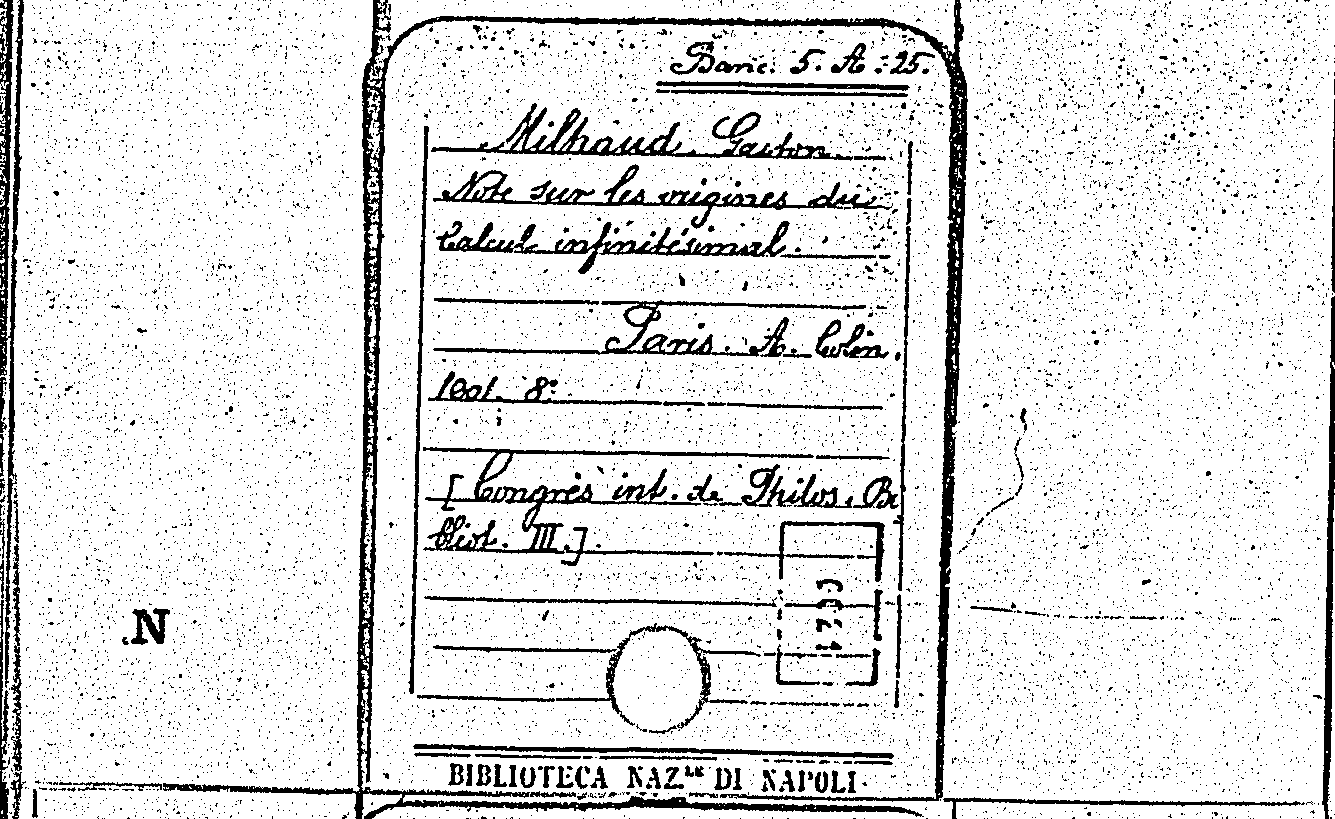 Banc. 5. A. 25.
Milhaud Gaston
Note sur les origines du
Calcul infinitésimal.
Paris. A. Colin.
1901. 8°
[Congrès int. de Philos. Bi
bliot. III.].
N
BIBLIOTECA NAZ.LE DI NAPOLI